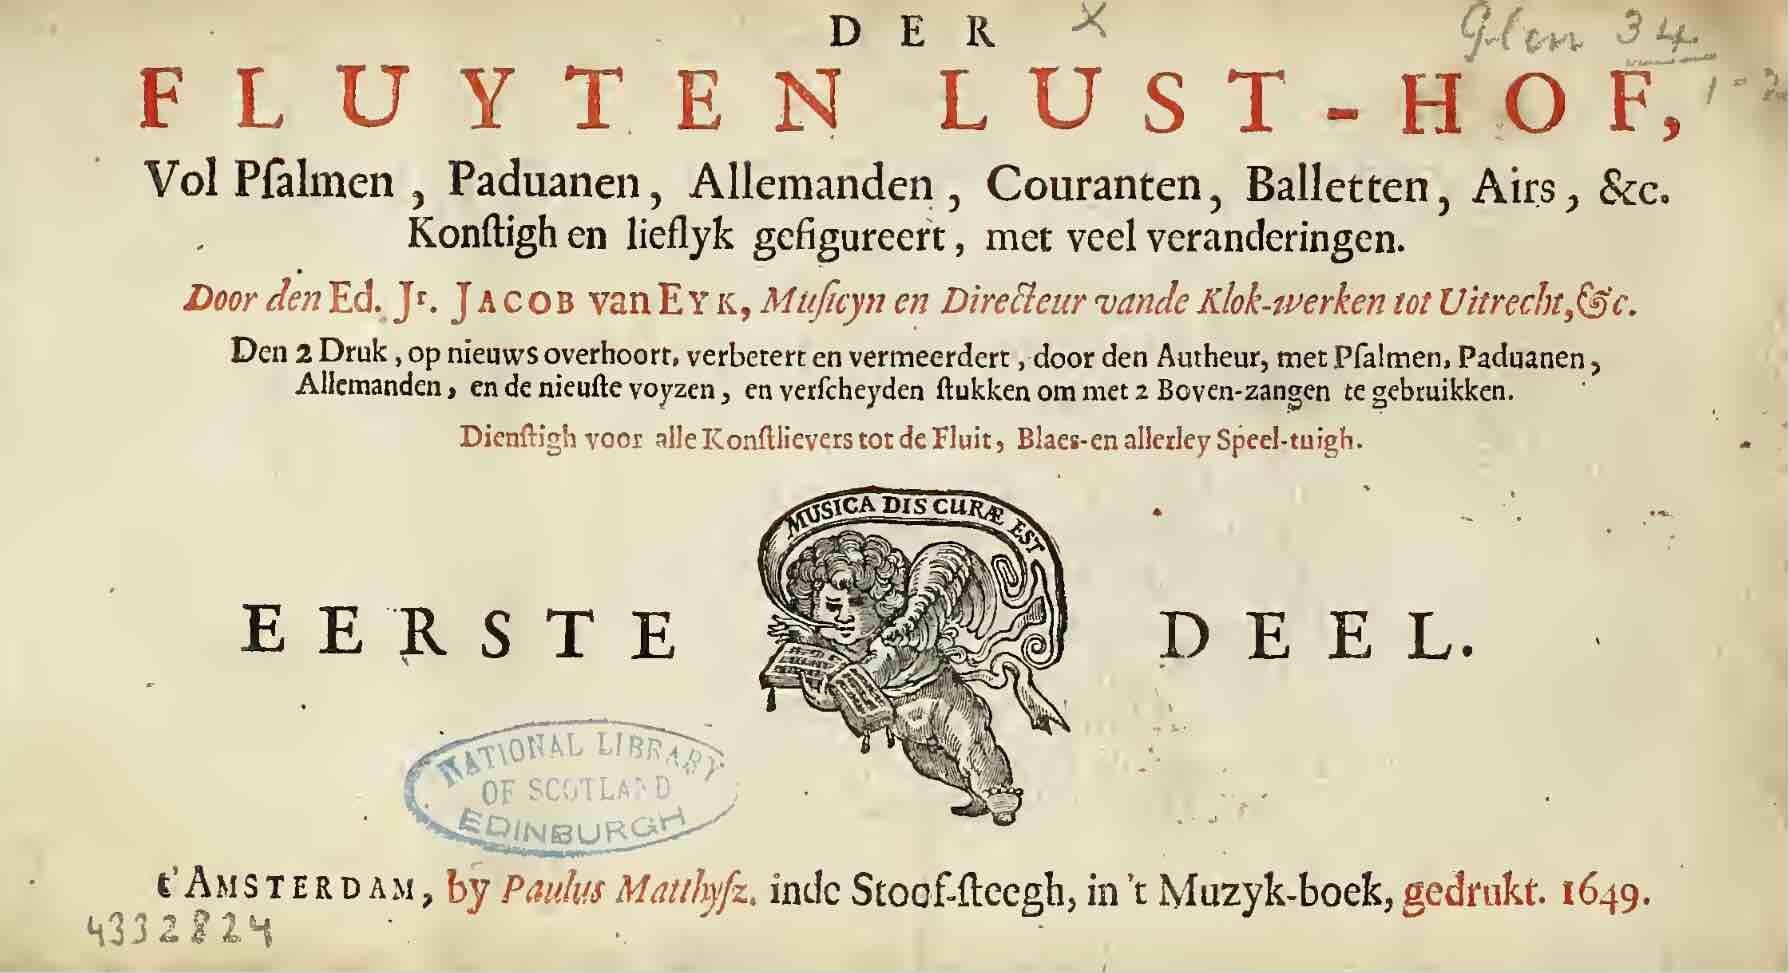 DER X
Glen 34.
FLUYTEN LUST-HOF,
Vol Pſalmen, Paduanen, Allemanden, Couranten, Balletten, Airs, &c.
Konſtigh en lieflyk gefigureert, met veel veranderingen.
Door den Ed. Jr. JACOB van EYK, Muſicyn en Directeur vande Klok-werken tot Uitrecht, &c.
Den 2 Druk, op nieuws overhoort, verbetert en vermeerdert, door den Autheur, met Pſalmen, Paduanen,
Allemanden, en de nieuſte voyzen, en verſcheyden ſtukken om met 2 Boven-zangen te gebruikken.
Dienſtigh voor alle Konſtlievers tot de Fluit, Blaes-en allerley Speel-tuigh.
MUSICA DIS CURÆ EST
EERSTE DEEL.
NATIONAL LIBRARY
OF SCOTLAND
EDINBURGH
t'AMSTERDAM, by Paulus Matthyſz. inde Stoof-ſteegh, in 't Muzyk-boek, gedrukt. 1649.
4332824